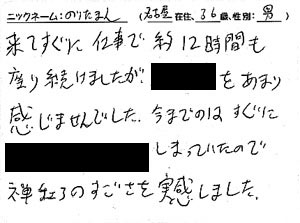 ニックネーム:のりたまん (名古屋在住、36歳、性別:男)
来てすぐに仕事で約12時間も
座り続けましたが をあまり
感じませんでした。今までのは すぐに
しまっていたので
禅紅3のすごさを実感しました。